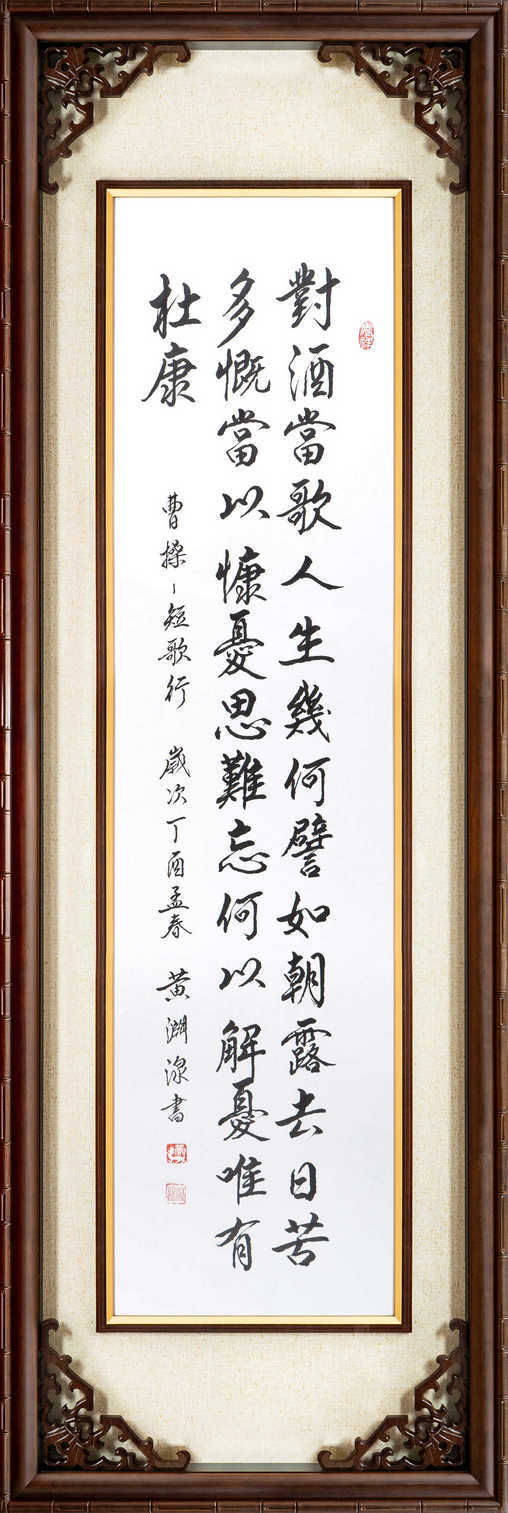 對酒當歌人生幾何譬如朝露去日苦
多慨當以慷憂思難忘何以解憂唯有
杜康
曹操、短歌行 歲次丁酉孟春 黃淵湶書